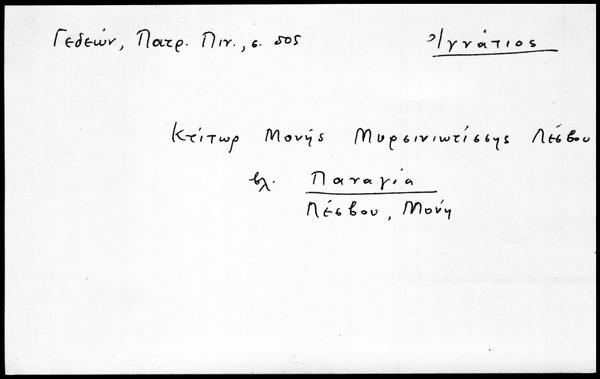 Γεδεών, Πατρ. Πιν., σ. 505 Ἰγνάτιος
Κτίτωρ Μονῆς Μυρσινιωτίσσης Λέσβου
βλ. Παναγία
Λέσβου, Μονή